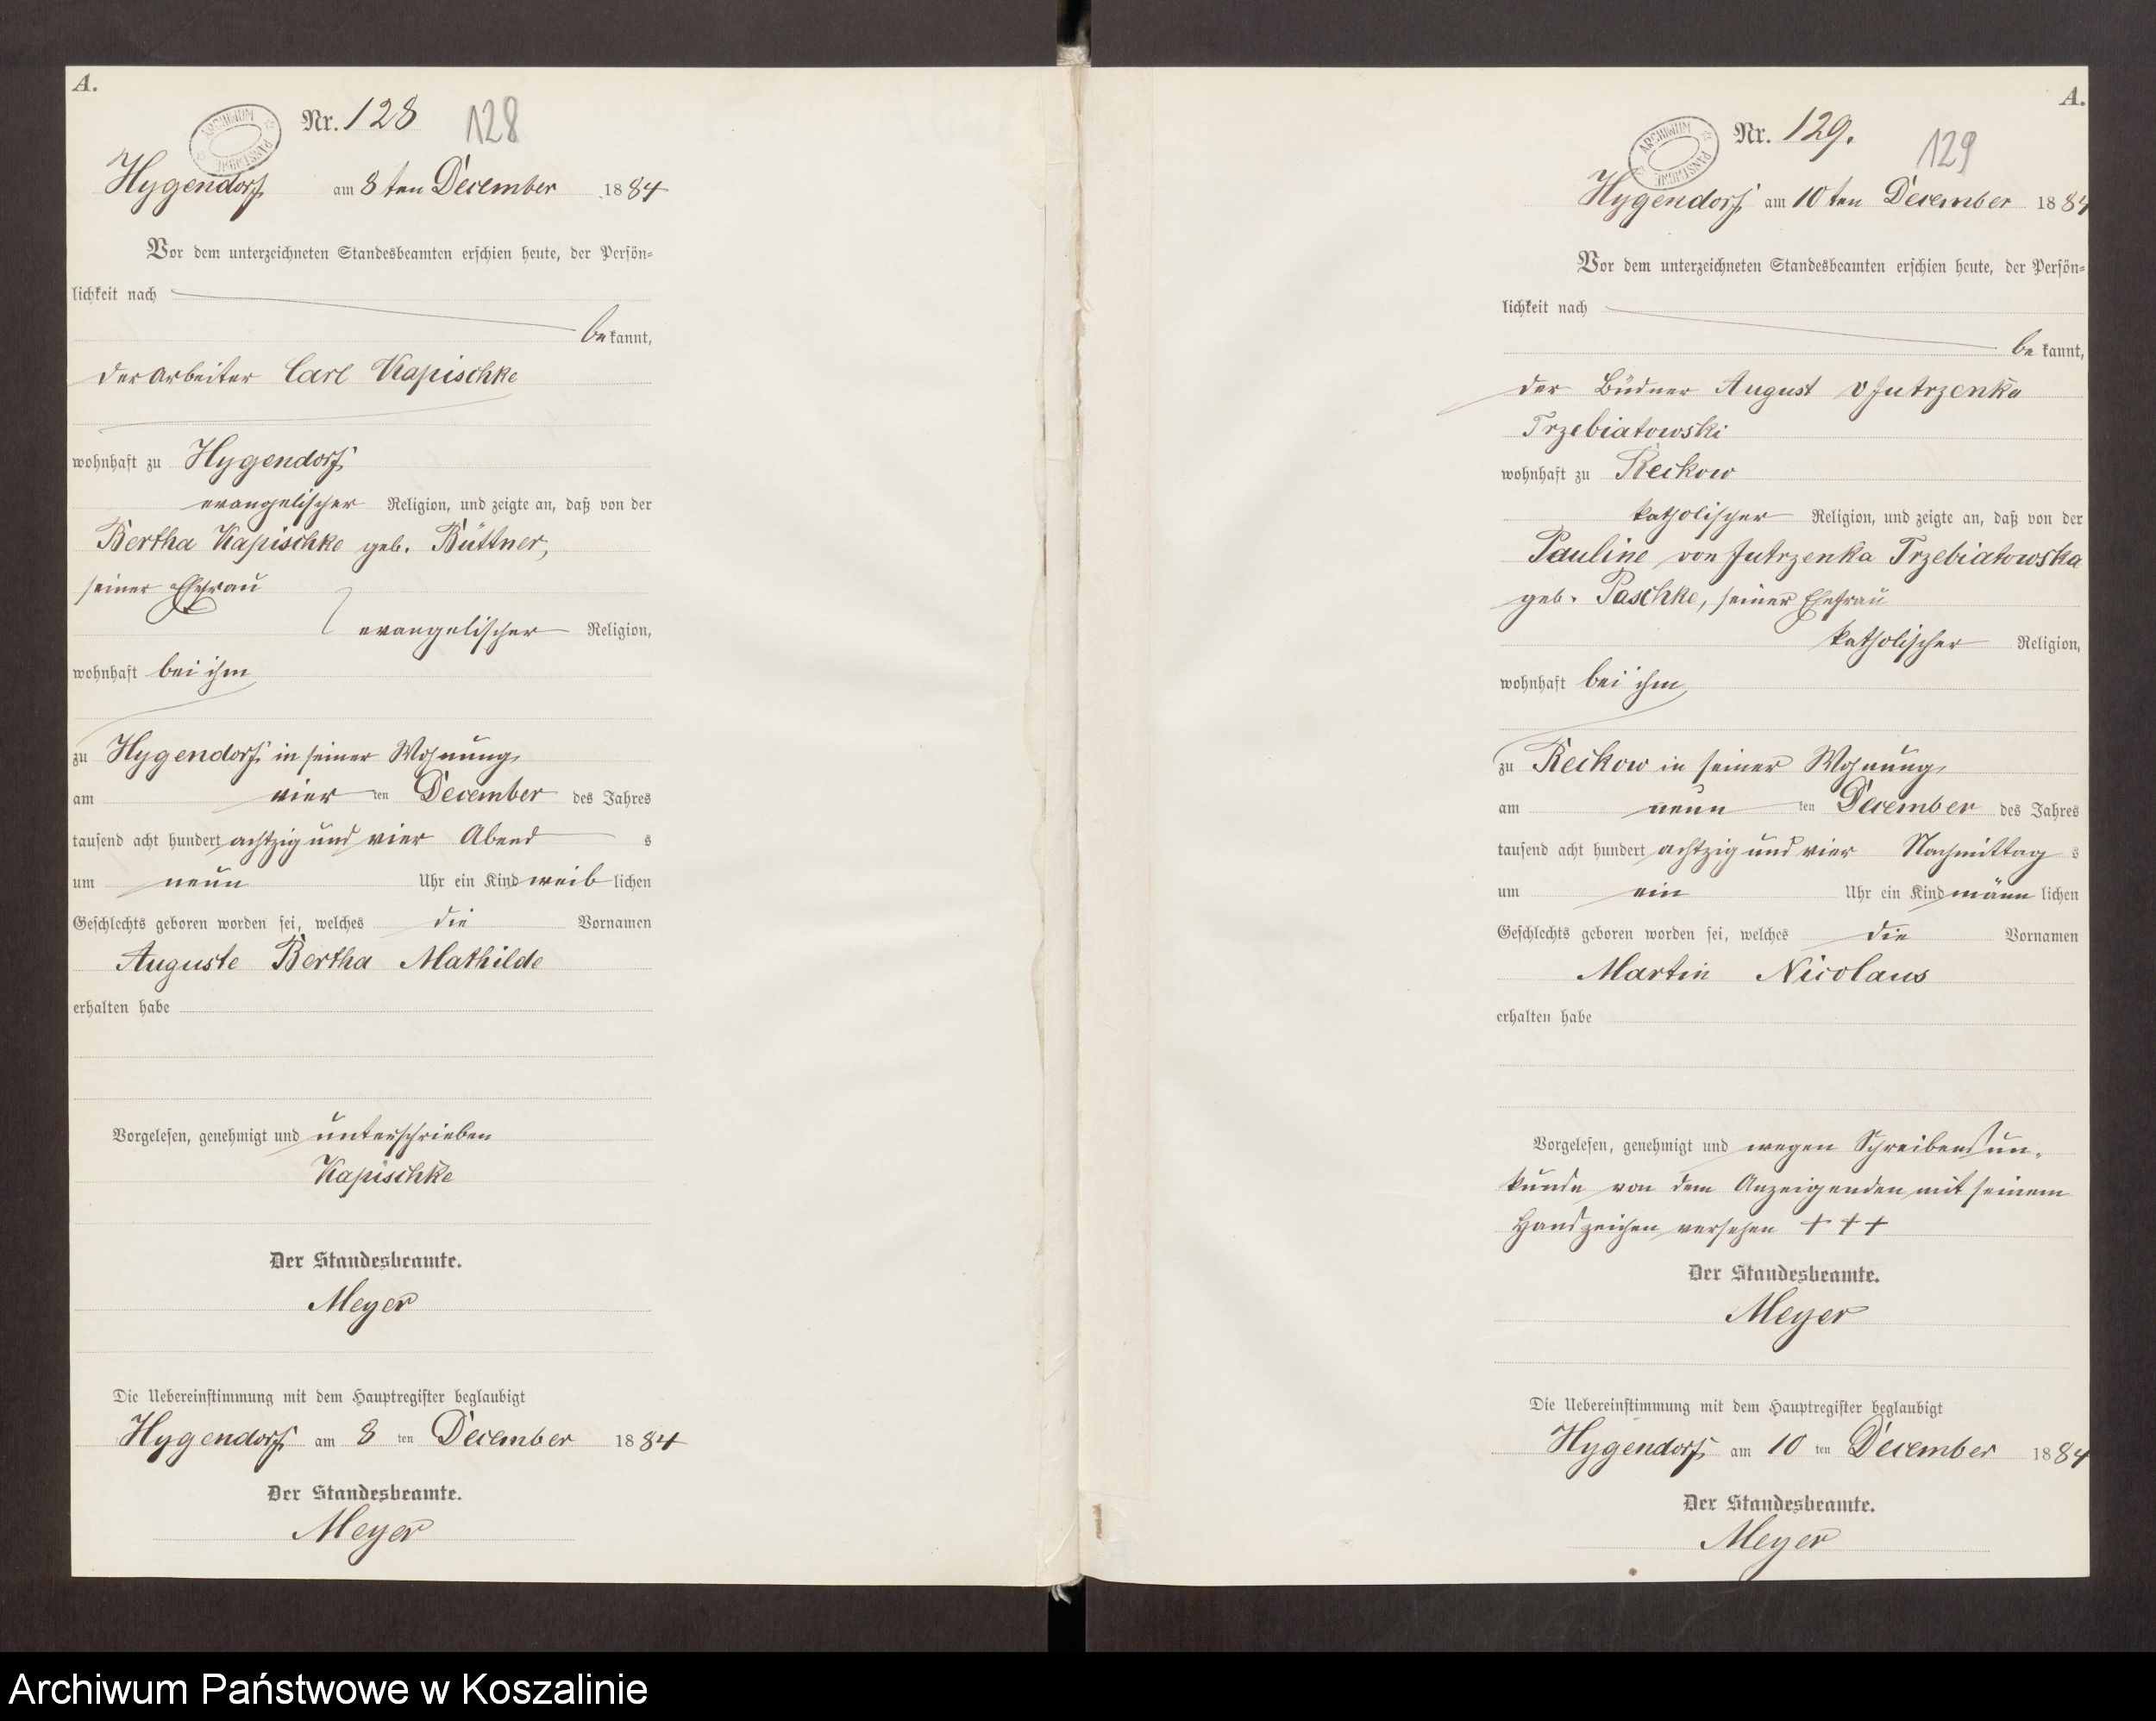 A.
ARCHIWUM PAŃSTWOWE
Nr. 128 128
Hygendorf am 8ten December 1884
Vor dem unterzeichneten Standesbeamten erschien heute, der Persön-
lichkeit nach
bekannt,
der Arbeiter Carl Kapischke
wohnhaft zu Hygendorf
evangelischer Religion, und zeigte an, daß von der
Bertha Kapischke geb. Büttner,
seiner Ehefrau
evangelischer Religion,
wohnhaft bei ihm
zu Hygendorf in seiner Wohnung
am vier ten December des Jahres
tausend acht hundert achtzig und vier Abend s
um neun Uhr ein Kind weiblichen
Geschlechts geboren worden sei, welches die Vornamen
Auguste Bertha Mathilde
erhalten habe
Vorgelesen, genehmigt und unterschrieben
Kapischke
Der Standesbeamte.
Meyer
Die Uebereinstimmung mit dem Hauptregister beglaubigt
Hygendorf am 8 ten December 1884
Der Standesbeamte.
Meyer
A.
ARCHIWUM PAŃSTWOWE
Nr. 129. 129
Hygendorf am 10ten December 1884
Vor dem unterzeichneten Standesbeamten erschien heute, der Persön-
lichkeit nach
bekannt,
der Büdner August v Jutrzenka
Trzebiatowski
wohnhaft zu Reckow
katholischer Religion, und zeigte an, daß von der
Pauline von Jutrzenka Trzebiatowska
geb. Paschke, seiner Ehefrau
katholischer Religion,
wohnhaft bei ihm
zu Reckow in seiner Wohnung
am neun ten December des Jahres
tausend acht hundert achtzig und vier Nachmittag s
um ein Uhr ein Kind männlichen
Geschlechts geboren worden sei, welches die Vornamen
Martin Nicolaus
erhalten habe
Vorgelesen, genehmigt und wegen Schreibensun-
kunde von dem Anzeigenden mit seinem
Handzeichen versehen + + +
Der Standesbeamte.
Meyer
Die Uebereinstimmung mit dem Hauptregister beglaubigt
Hygendorf am 10 ten December 1884
Der Standesbeamte.
Meyer
Archiwum Państwowe w Koszalinie